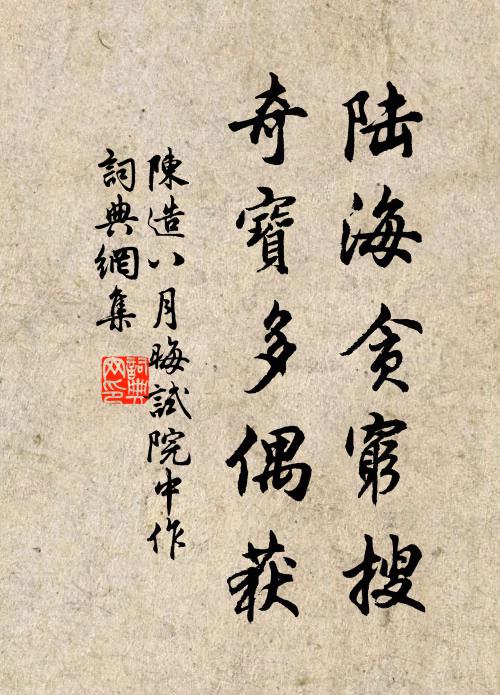 陆海贪穷搜
奇寶多偶获
陳造八月晦試院中作
詞典網集
詞典
网印